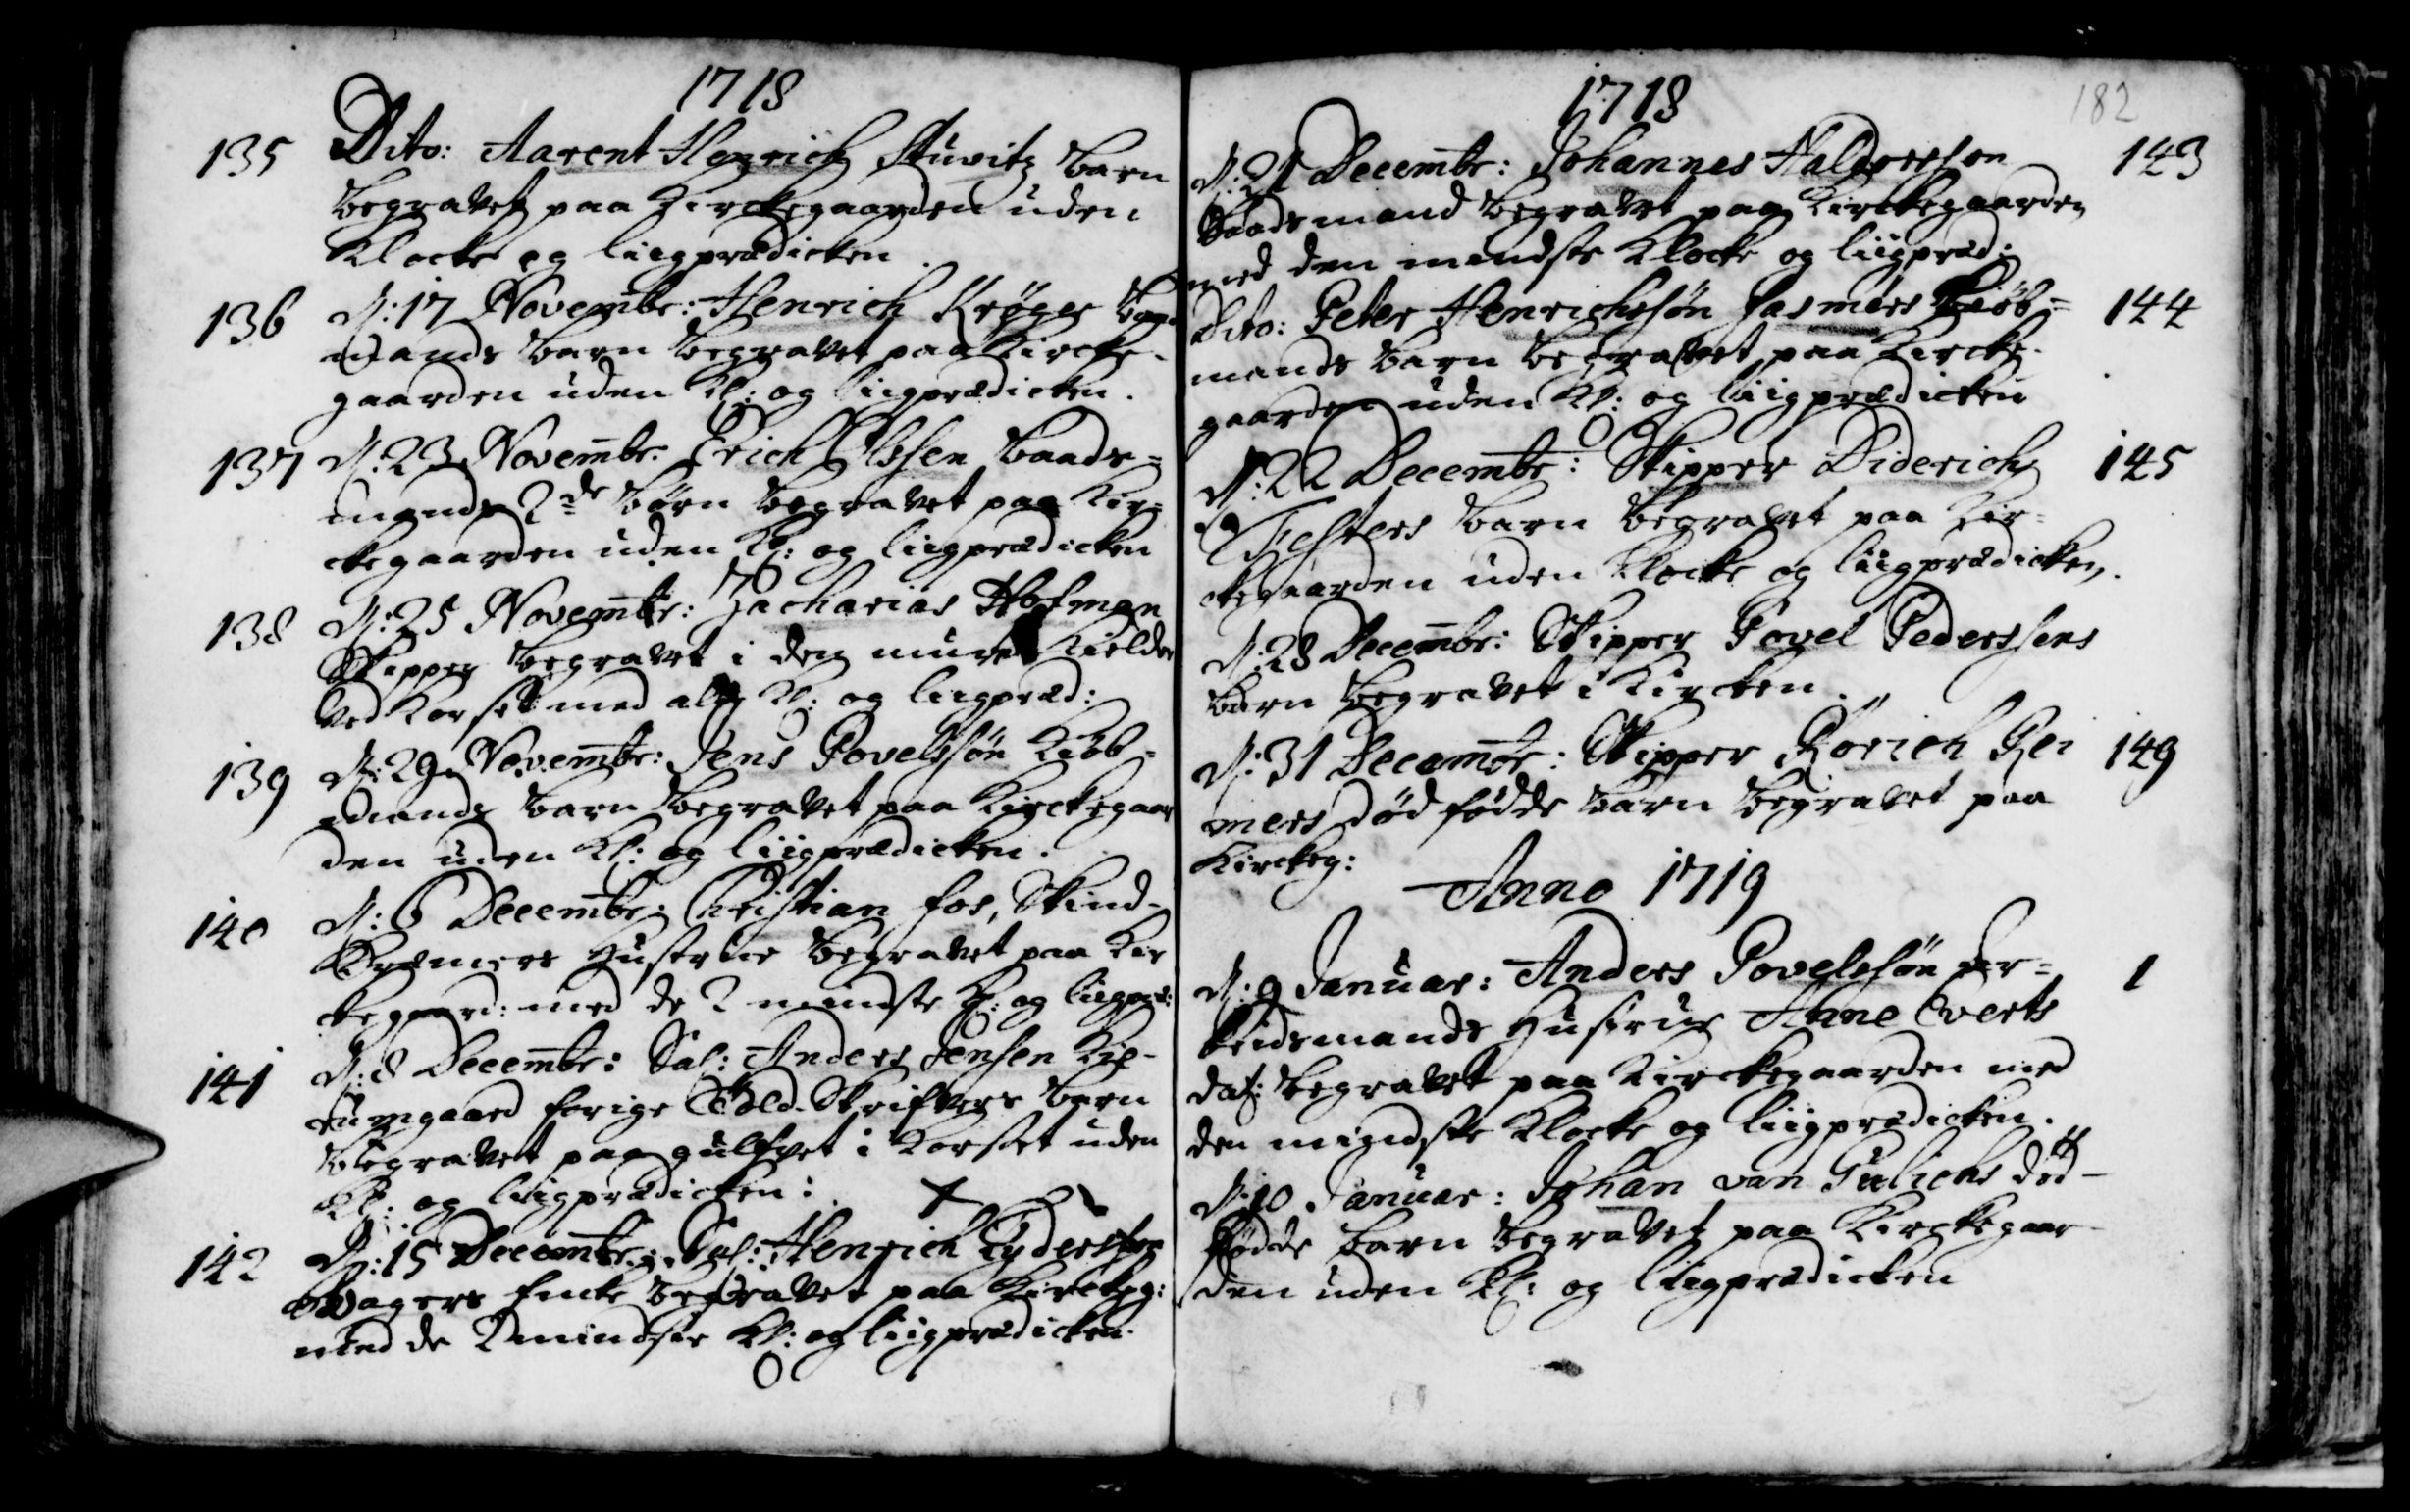 1718
135 Dito: Aarent Henrich Stuvitz barn
begravet paa Kirckegaarden uden
Klocke og liigprædicken.
136 D: 17 Novembr: Henrich Krøger
mands barn begravet paa Kircke-
gaarden uden Kl: og liigprædicken.
137 D: 23 Novembr: Erich Olssen Baads=
mands 2de børn begravet paa Kir=
ckegaarden uden Kl: og liigprædicken
138 D: 25 Novembr: Zacharias Hofman
Skipper begravet i den murede Kielder
ved Korset med alle Kl: og liigpræd:
139 D: 29 Novembr: Jens Povelssøn Kiöb=
mands barn begravet paa Kirckegaar
den uden Kl: og liigprædicken.
140 D: 6 Decembr: Christian fos, Skind-
Kremers Hustrue begravet paa Kir
ckegaard: med de 2 mindste Kl: og liigpræd:
141 D: 8 Decembr: Sal: Anders Jensen
forige Told-Skrifvers barn
begravet paa gulfvet i Korset uden
Kl: og liigprædicken:
142 D: 15 Decembr: Sal: Henrich
Bagers Encke begravet paa Kirckeg:
med de 2 mindste Kl: og liigprædicken.
1718
182
D: 21 Decembr: Johannes Haldorsson 143
Baadsmand begravet paa Kirckegaarden
med den mindste Klocke og liigpræd:
Dito: Peter Henrichssøn Jasmers Kiöb= 144
mands barn begravet paa Kircke-
gaarden uden Kl: og liigprædicken
D: 22 Decembr: Skipper Diderich 145
Festers barn begravet paa Kir=
ckegaarden uden Klocke og liigprædicken.
D: 28 Decembr: Skipper Povel Pederssens
barn begravet i Kircken.
D: 31 Decembr: Skipper Rörich Rei 149
mers død fødde barn begravet paa
Kirckeg:
Anno 1719
D: 9 Januar: Anders Povelssøn Ar= 1
beidsmands Hustrue Anne Everts
dat: begravet paa Kirckegaarden med
den mindste Klocke og liigprædicken.
D: 10 Januar: Johan van Gulichs död-
födde barn begravet paa Kirckegaar-
den uden Kl: og liigprædicken